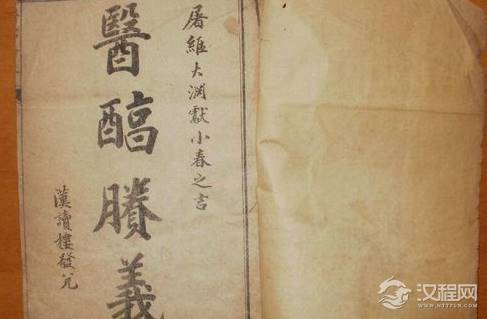 屠維大渊獻小春之吉
醫醕賸義
漢讀樓發兌
汉程网
WWW.HTTPCN.COM